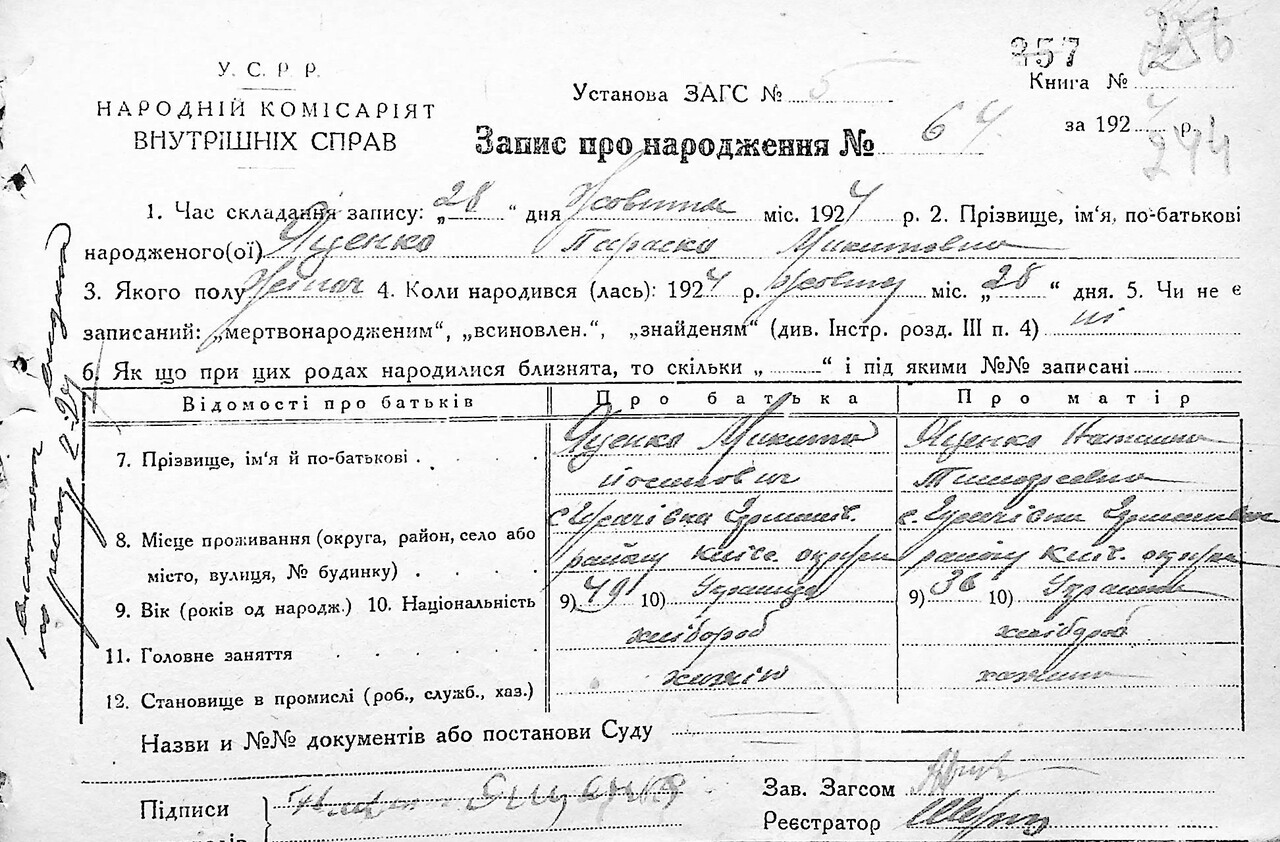 У. С. Р. Р.
НАРОДНІЙ КОМІСАРІЯТ
ВНУТРІШНІХ СПРАВ
Установа ЗАГС № 5
357
256
Книга №
за 1924 р.
294
Запис про народження № 64
1. Час складання запису: „28“ дня Жовтня міс. 1924 р. 2. Прізвище, ім'я, по-батькові
народженого(ої) Яценко Параска Микитовна
3. Якого полу Жіноч 4. Коли народився (лась): 1924 р. Жовтня міс. „28“ дня. 5. Чи не є
записаний: „мертвонародженим“, „всиновлен.“, „знайденям“ (див. Інстр. розд. III п. 4) ні
6. Як що при цих родах народилися близнята, то скільки „ “ і під якими №№ записані
Відомості про батьків Про батька Про матір
7. Прізвище, ім'я й по-батькові Яценко Микита Яценко Наталка
Йосипович Тимофеевна
8. Місце проживання (округа, район, село або с. район Київс. округи с. район Київ. округи
місто, вулиця, № будинку)
9. Вік (років од народж.) 10. Національність 9) 49 10) Українец 9) 36 10) Українка
11. Головне заняття хлібороб хлібороб
12. Становище в промислі (роб., служб., хаз.) хазяін хазяйка
Назви и №№ документів або постанови Суду
Підписи Яценко
Зав. Загсом
Реєстратор